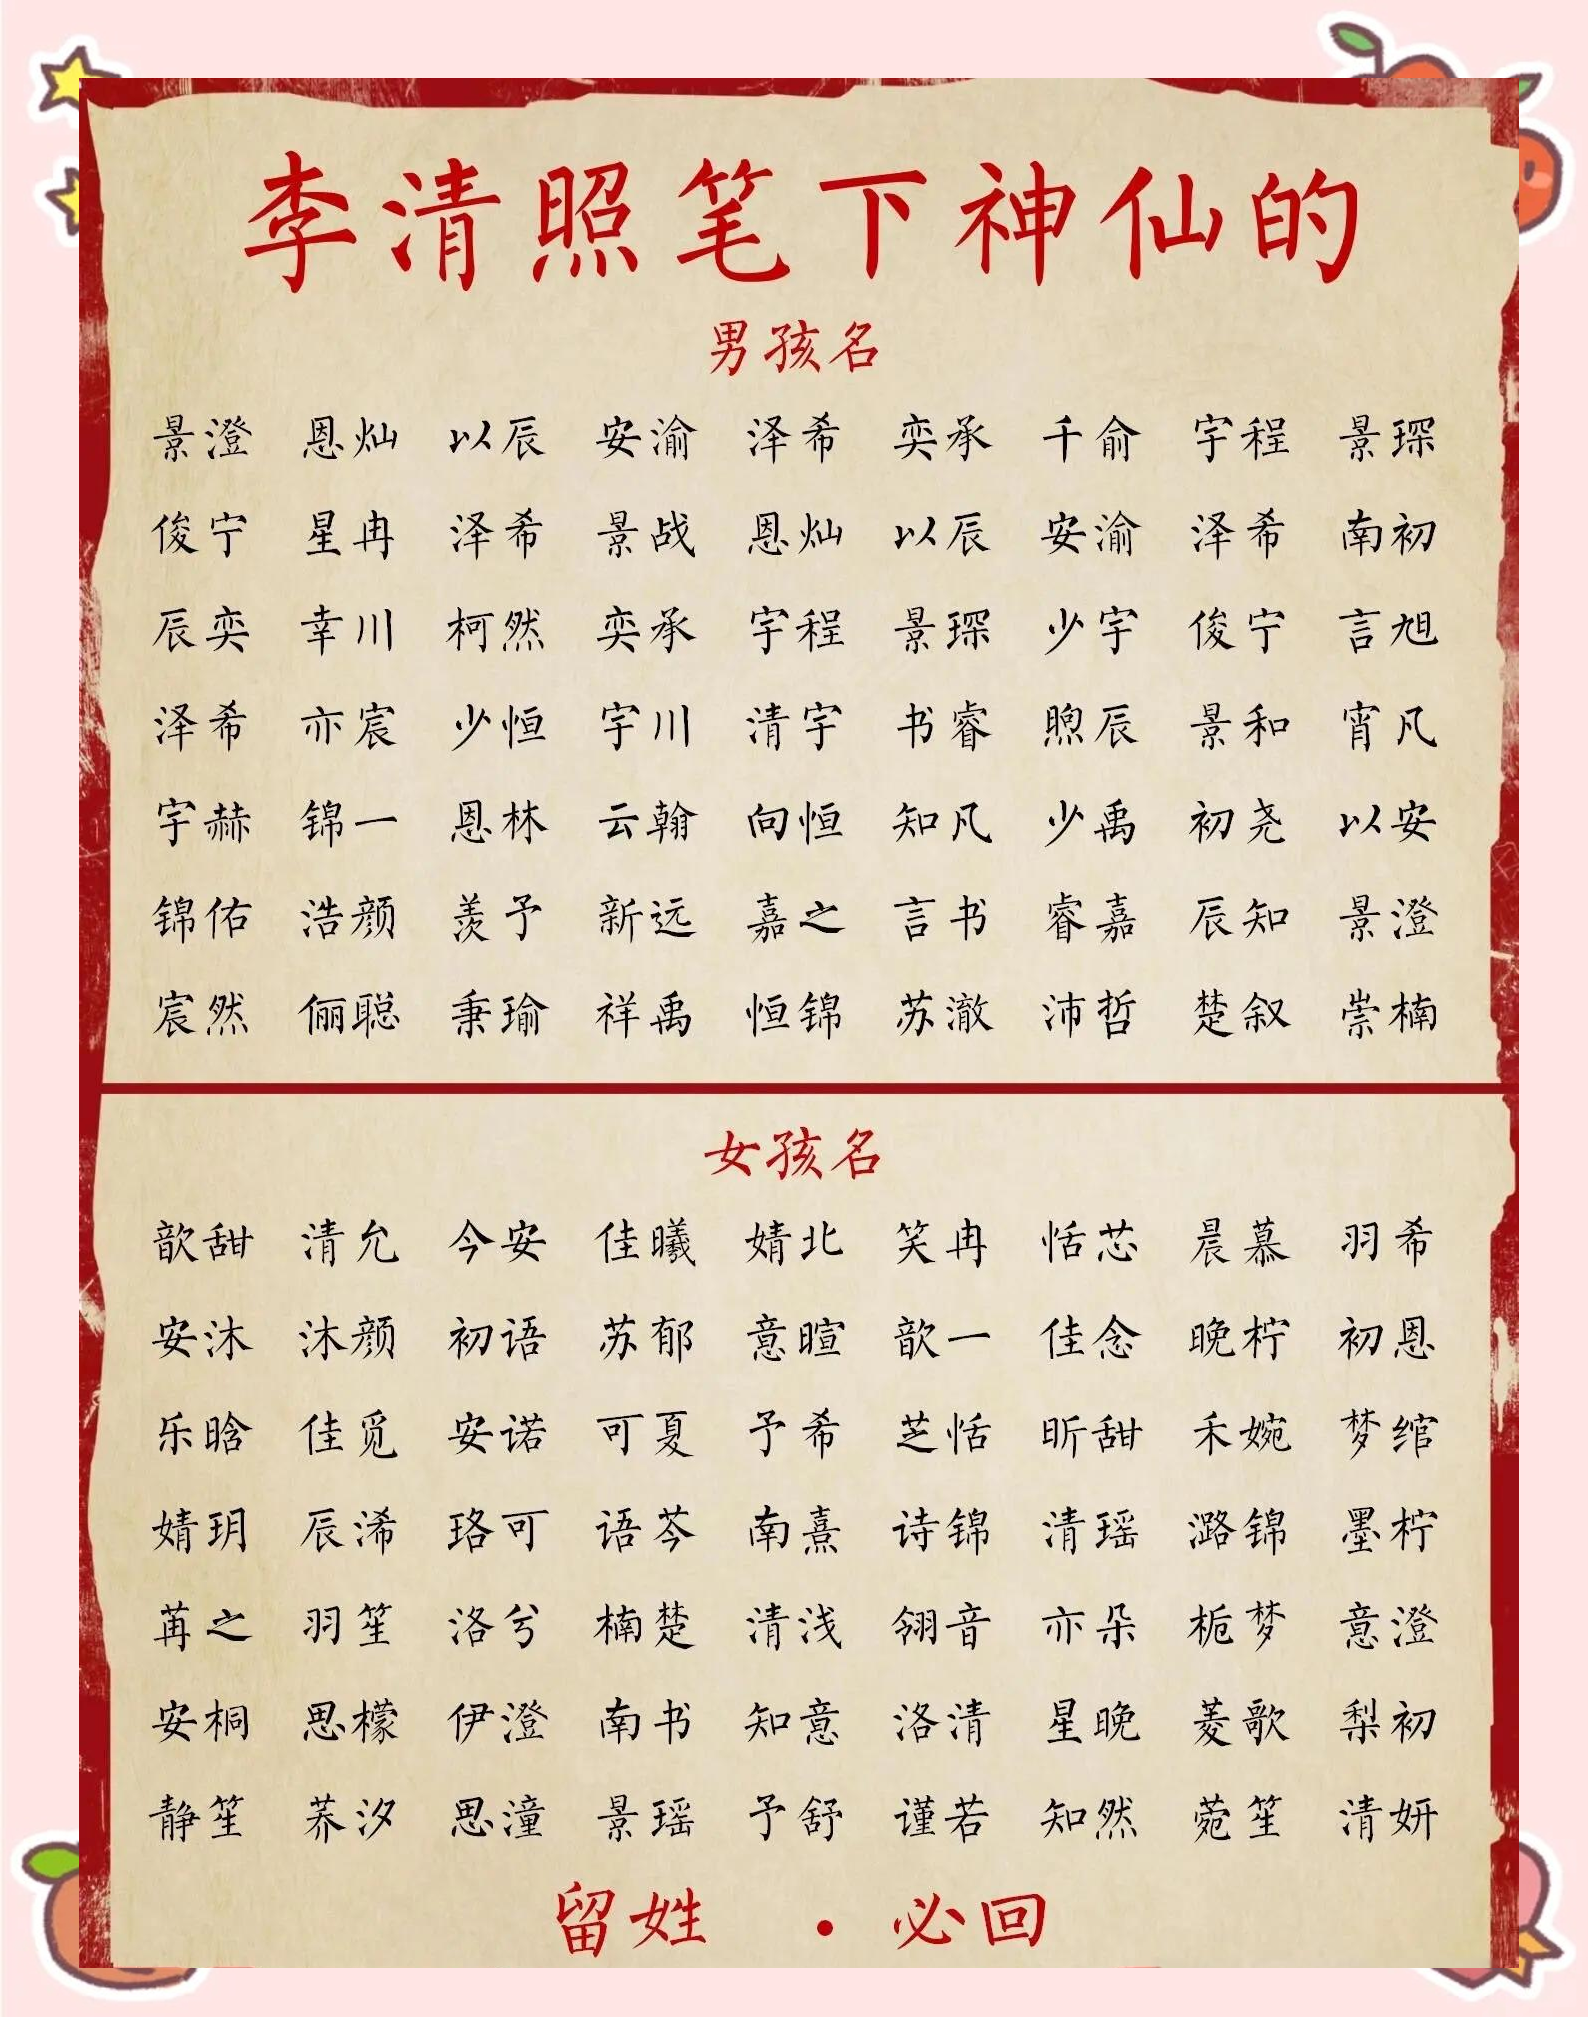 李清照笔下神仙的
男孩名
景澄 恩灿 以辰 安渝 泽希 奕承 千俞 宇程 景琛
俊宁 星冉 泽希 景战 恩灿 以辰 安渝 泽希 南初
辰奕 幸川 柯然 奕承 宇程 景琛 少宇 俊宁 言旭
泽希 亦宸 少恒 宇川 清宇 书睿 煦辰 景和 宵凡
宇赫 锦一 恩林 云翰 向恒 知凡 少禹 初尧 以安
锦佑 浩颜 羡予 新远 嘉之 言书 睿嘉 辰知 景澄
宸然 俪聪 秉瑜 祥禹 恒锦 苏澈 沛哲 楚叙 崇楠
女孩名
歆甜 清允 今安 佳曦 婧北 笑冉 恬芯 晨慕 羽希
安沐 沐颜 初语 苏郁 意暄 歆一 佳念 晚柠 初恩
乐晗 佳觅 安诺 可夏 予希 芝恬 昕甜 禾婉 梦绾
婧玥 辰浠 珞可 语芩 南熹 诗锦 清瑶 潞锦 墨柠
苒之 羽笙 洛兮 楠楚 清浅 翎音 亦朵 栀梦 意澄
安桐 思檬 伊澄 南书 知意 洛清 星晚 菱歌 梨初
静笙 荞汐 思潼 景瑶 予舒 谨若 知然 菀笙 清妍
留姓 · 必回